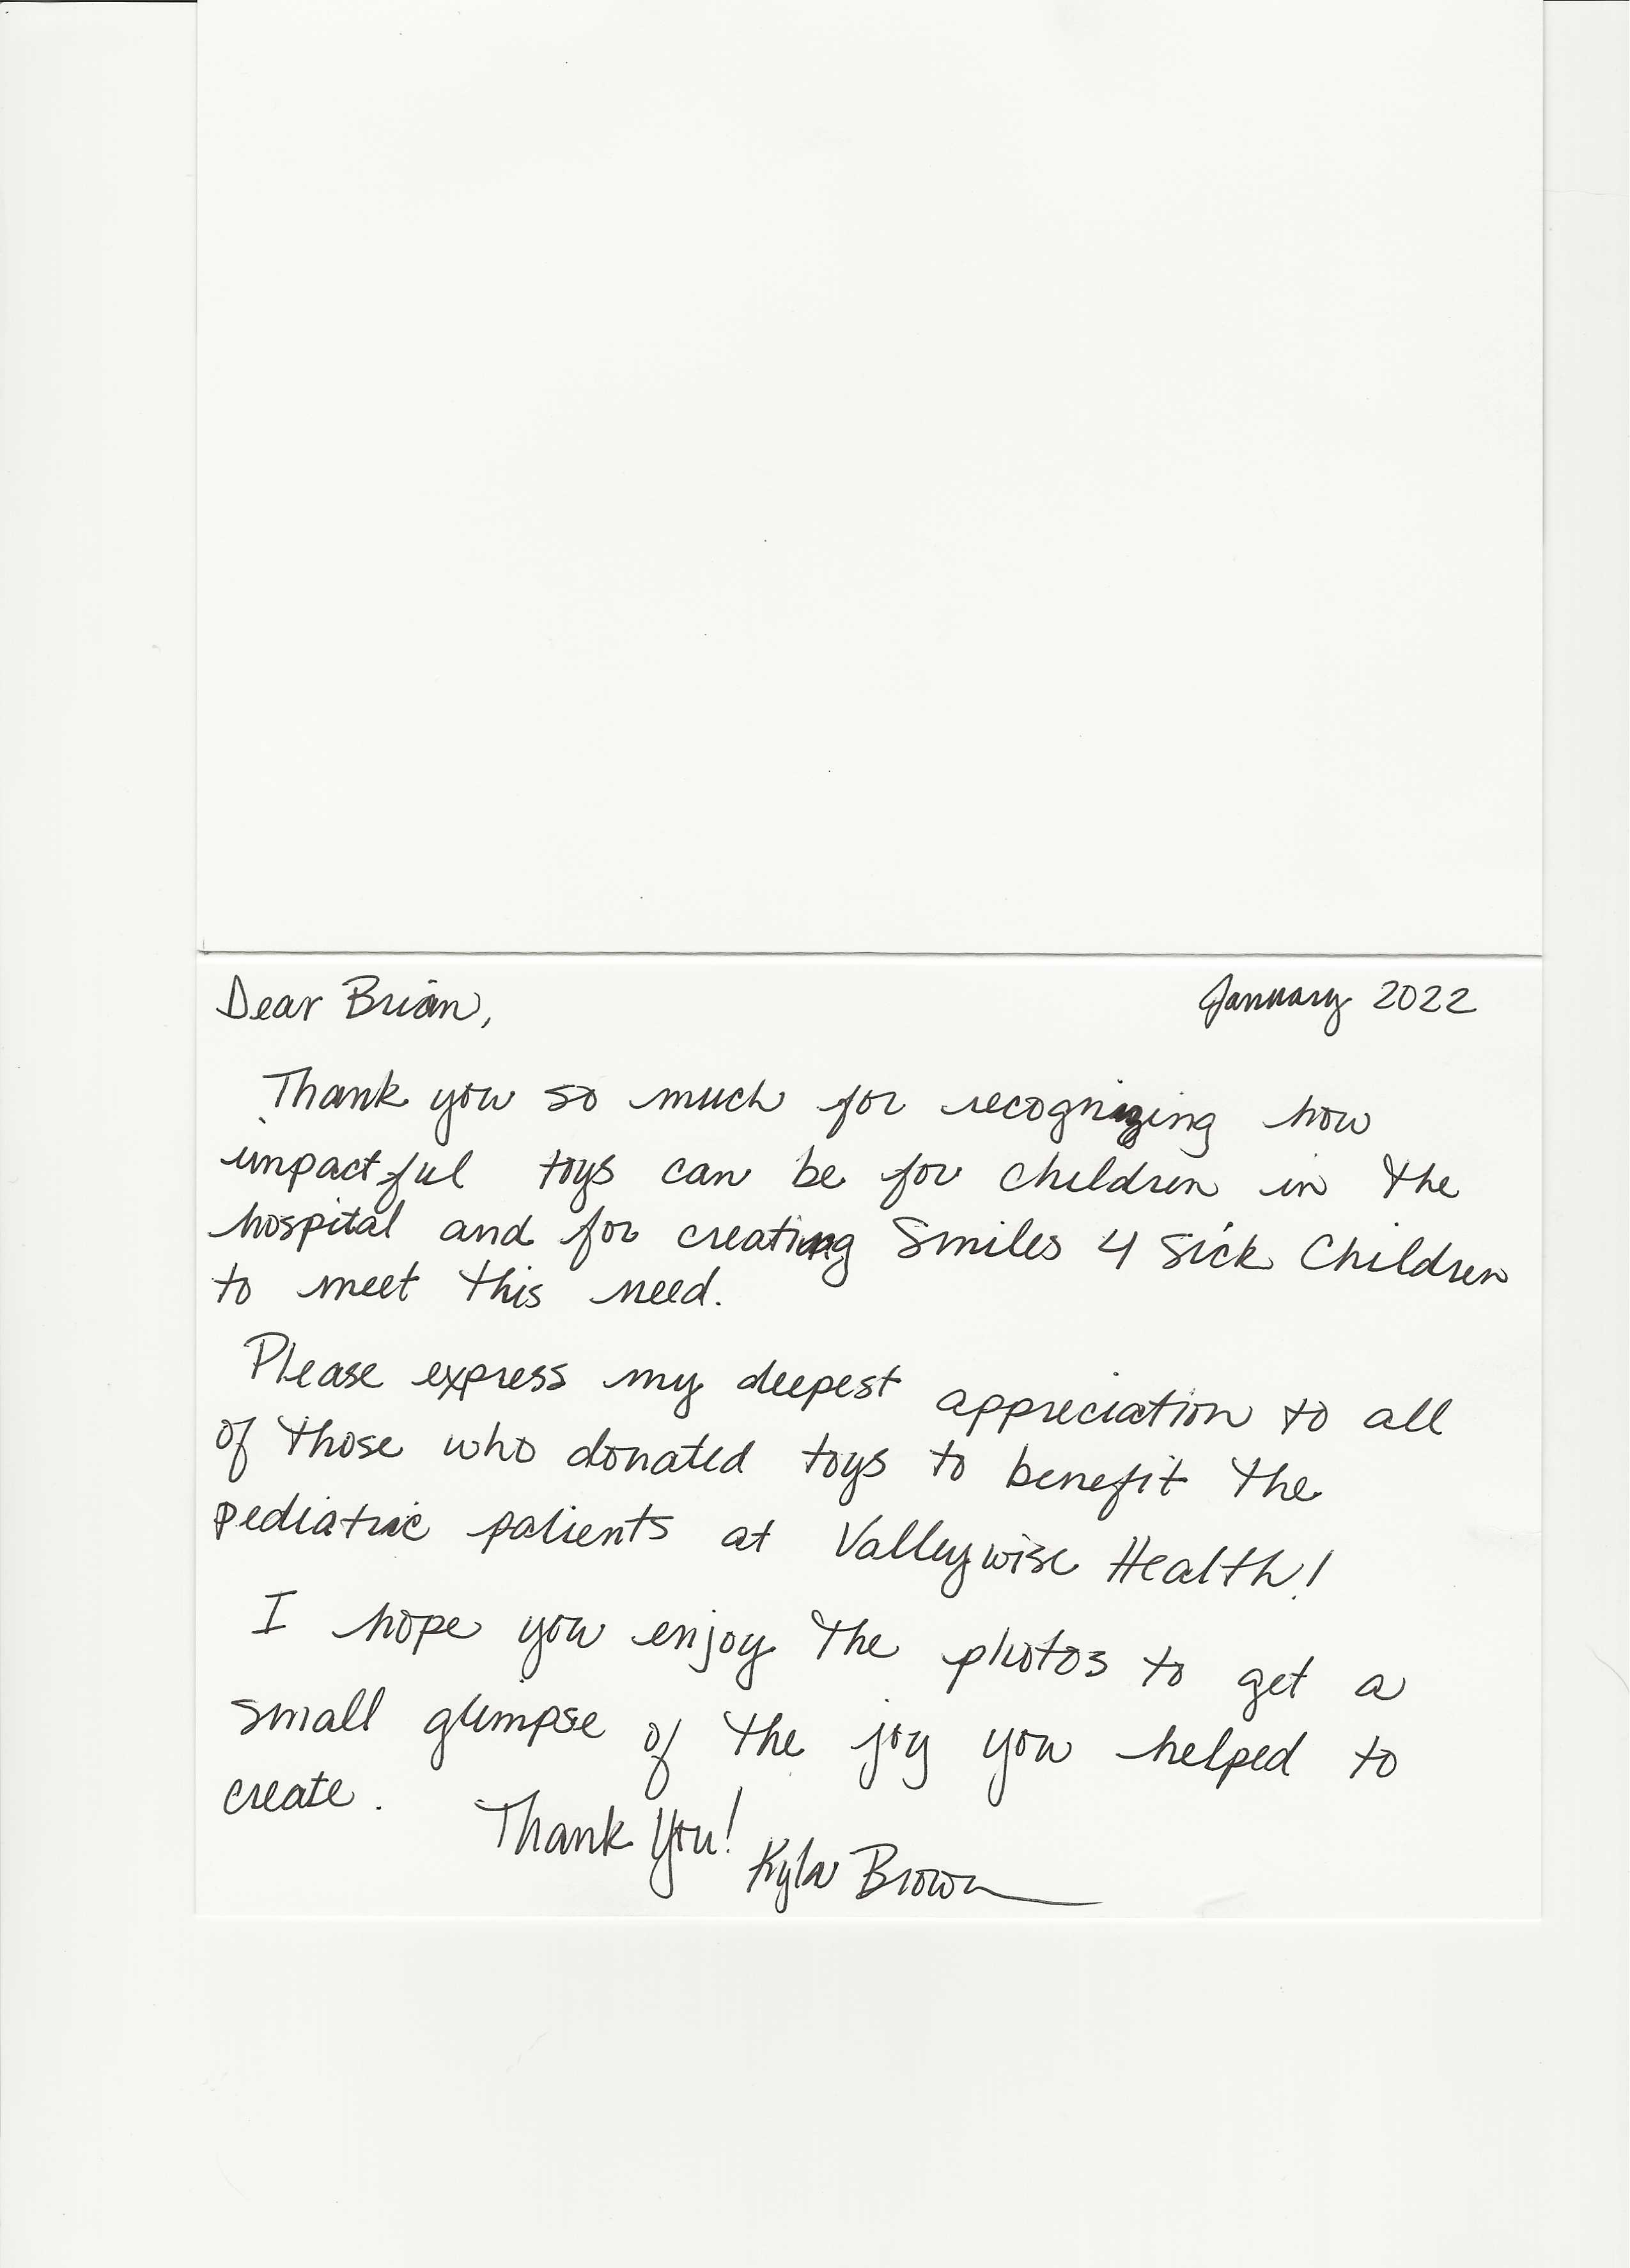 Dear Brian, January 2022
Thank you so much for recognizing how
impactful toys can be for children in the
hospital and for creating Smiles 4 Sick Children
to meet this need.
Please express my deepest appreciation to all
of those who donated toys to benefit the
pediatric patients at Valleywise Health!
I hope you enjoy the photos to get a
small glimpse of the joy you helped to
create. Thank You!
Kyla Brown